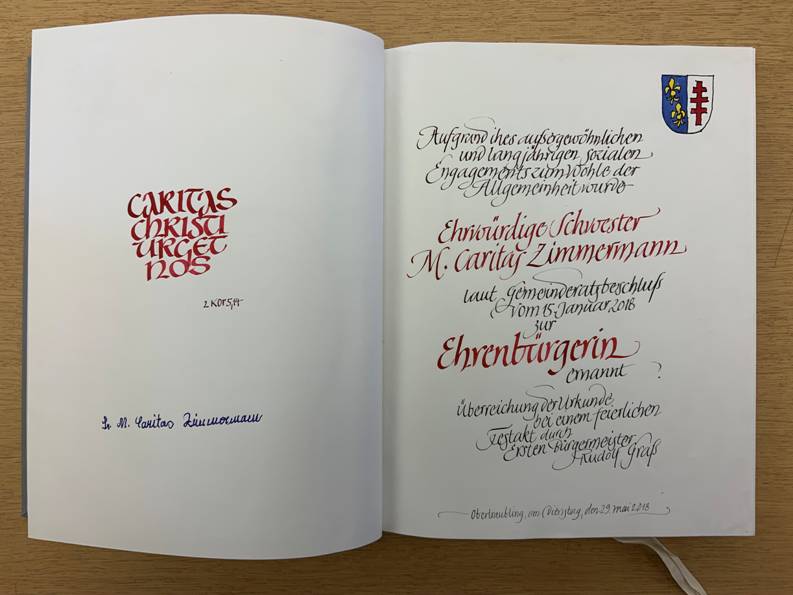 CARITAS
CHRISTI
URGET
NOS
2 Kor 5,14
Sr. M. Caritas Zimmermann
Aufgrund ihres außergewöhnlichen
und langjährigen sozialen
Engagements zum Wohle der
Allgemeinheit wurde
Ehrwürdige Schwester
M. Caritas Zimmermann
laut Gemeinderatsbeschluß
vom 15. Januar 2018
zur
Ehrenbürgerin
ernannt
Überreichung der Urkunde
bei einem feierlichen
Festakt durch
Ersten Bürgermeister
Rudolf Graß
Oberleubling, am Dienstag, den 29. Mai 2018